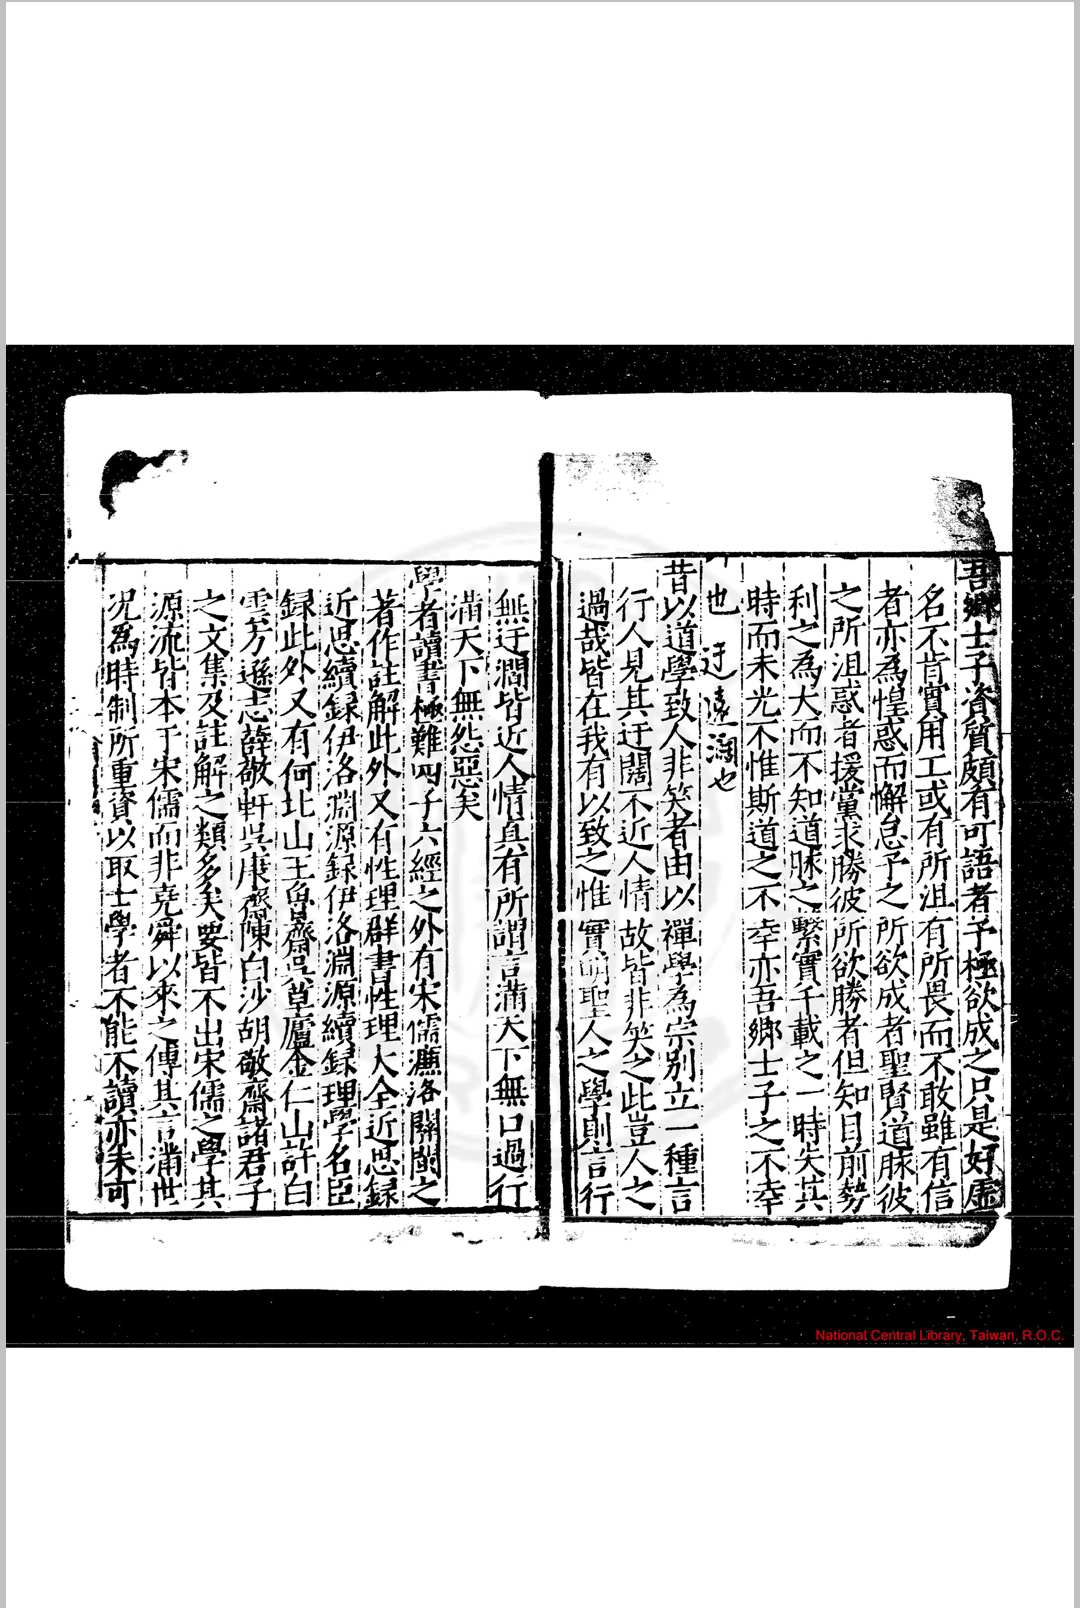 吾鄉士子資質頗有可語者予極欲成之只是好虛
名不肯實用工或有所沮有所畏而不敢雖有信
者亦為惶惑而懈怠予之所欲成者聖賢道脉彼
之所沮惑者援黨求勝彼所欲勝者但知目前勢
利之為大而不知道脉之繫實千載之一時失其
時而未光不惟斯道之不幸亦吾鄉士子之不幸
也 迂遠濶也
昔以道學致人非笑者由以禪學為宗别立一種言
行人見其迂闊不近人情故皆非笑之此豈人之
過哉皆在我有以致之惟實前聖人之學則言行
無迂濶皆近人情真有所謂言滿天下無口過行
滿天下無怨惡矣
學者讀書極難四子六經之外有宋儒濂洛關閩之
著作註解此外又有性理群書性理大全近思録
近思續録伊洛淵源録伊洛淵源續録理學名臣
録此外又有何北山王魯齋吳草廬金仁山許白
雲方遜志薛敬軒吳康齋陳白沙胡敬齋諸君子
之文集及註解之類多矣要皆不出宋儒之學其
源流皆本于宋儒而非堯舜以來之傳其言滿世
况為時制所重資以取士學者不能不讀亦未可
National Central Library, Taiwan, R.O.C.